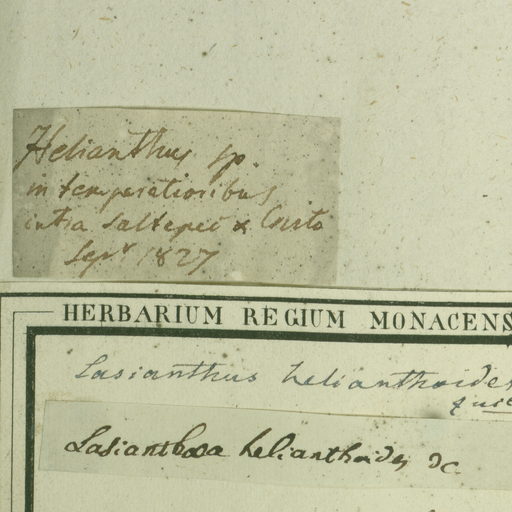 Helianthus sp.
in temperatioribus
intra Saltepec &
Sepr 1827
HERBARIUM REGIUM MONACENS
Lasianthus helianthoides
Lasianthaea helianthoides DC.